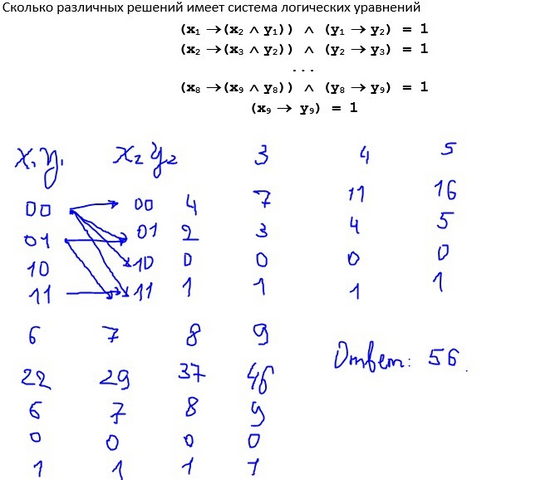 Сколько различных решений имеет система логических уравнений
(x₁ →(x₂ ∧ y₁)) ∧ (y₁ → y₂) = 1
(x₂ →(x₃ ∧ y₂)) ∧ (y₂ → y₃) = 1
...
(x₈ →(x₉ ∧ y₈)) ∧ (y₈ → y₉) = 1
(x₉ → y₉) = 1
x₁y₁ x₂y₂ 3 4 5
00 00 4 7 11 16
01 01 2 3 4 5
10 10 0 0 0 0
11 11 1 1 1 1
6 7 8 9
22 29 37 46
6 7 8 9
0 0 0 0
1 1 1 1
Ответ: 56.